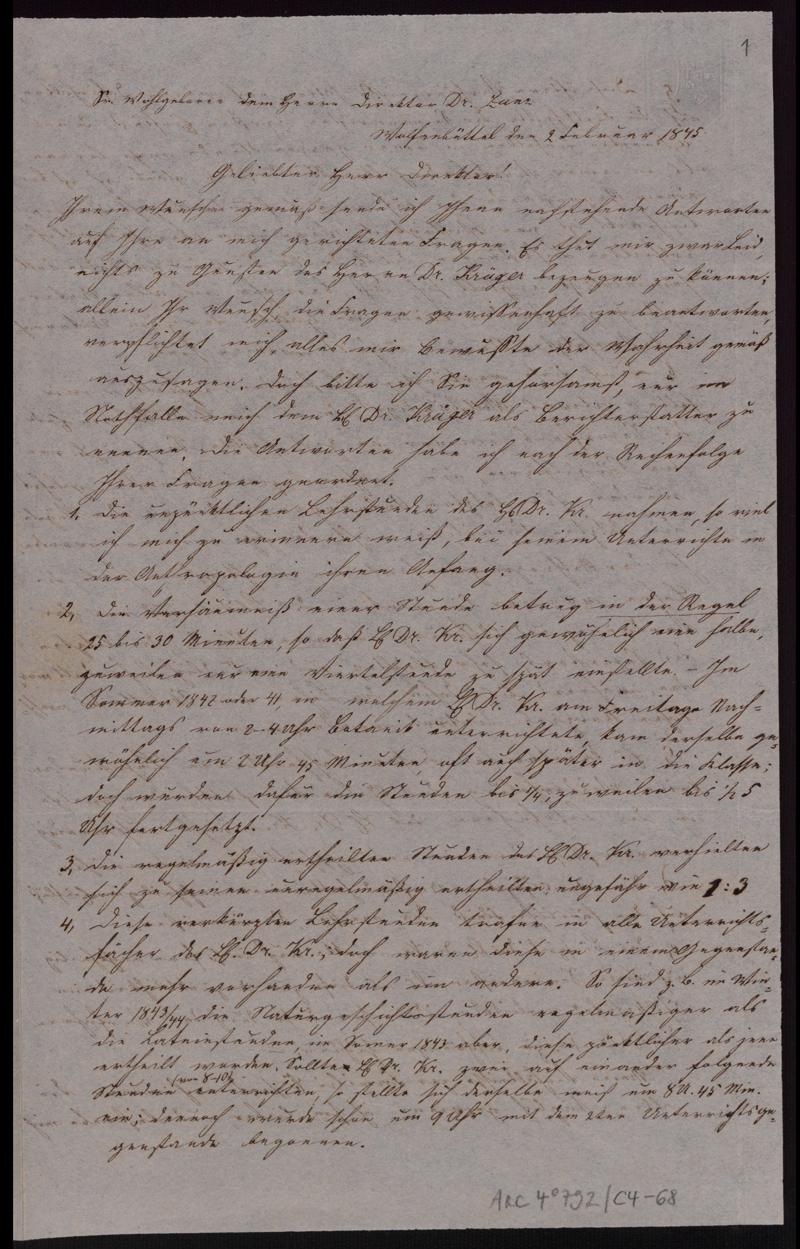 1
Sr. Wohlgeboren dem Herrn Direktor Dr. Zunz
Wolfenbüttel den 2 Februar 1845
Geliebter Herr Direktor!
Ihrem Wunsche gemäß sende ich Ihnen nachstehende Antworten
auf Ihre an mich gerichteten Fragen. Es thut mir zwar Leid,
nichts zu Gunsten des Herrn Dr. Krüger bezeugen zu können;
allein Ihr Wunsch, die Fragen gewissenhaft zu beantworten,
verpflichtet mich, alles mir Bewußte der Wahrheit gemäß
auszusagen. Doch bitte ich Sie gehorsamst, nur im
Nothfalle mich dem H Dr. Krüger als Berichterstatter zu
nennen. Die Antworten habe ich nach der Reihenfolge
Ihrer Fragen geordnet.
1. Die unpünktlichen Lehrstunden des H Dr. Kr. nahmen, so viel
ich mich zu erinnern weiß, bei seinem Unterrichte in
der Anthropologie ihren Anfang.
2, Die Versäumniß einer Stunde betrug in der Regel
25 bis 30 Minuten, so daß H Dr. Kr. sich gewöhnlich eine halbe,
zuweilen nur eine Viertelstunde zu spät einstellte. – Im
Sommer 1842 oder 41, in welchem H Dr. Kr. am Freitage Nach=
mittags von 2–4 Uhr Botanik unterrichtete, kam derselbe ge=
wöhnlich um 2 Uhr 45 Minuten, oft auch später in die Klasse;
doch wurden dafür die Stunden bis 1/4, zuweilen bis 1/2 5
Uhr fortgesetzt.
3, Die regelmäßig ertheilten Stunden des H Dr. Kr. verhielten
sich zu seinen unregelmäßig ertheilten, ungefähr wie 1:3
4, Diese verkürzten Lehrstunden trafen in alle Unterrichts=
fächer des H. Dr. Kr.; doch waren diese in einem Gegenstan=
de mehr vorhanden als im andern. So sind z. B. im Win=
ter 1843/44 die Naturgeschichtsstunden regelmäßiger als
die Lateinstunden, im Sommer 1843 aber, diese pünktlicher als jene
ertheilt worden. Sollte H Dr. Kr. zwei auf einander folgende
Stunden (von 8–10) unterrichten, so stellte sich derselbe meist um 8 U. 45 Min.
ein; dennoch wurde schon um 9 Uhr mit dem 2ten Unterrichtsge=
genstande begonnen.
ARC 4° 792/C4-68